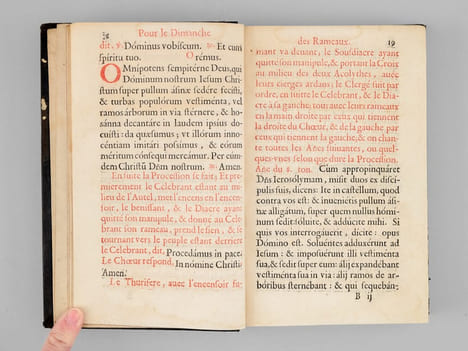 38 Pour le Dimanche
dit, ℣. Dóminus vobiscum. ℟. Et cum
spíritu tuo. Orémus.
OMnípotens sempitérne Deus, qui
Dóminum nostrum Iesum Chri-
stum super pullum ásinæ sedére fecísti,
& turbas populórum vestiménta, vel
ramos árborum in via stérnere, & ho-
sánna decantáre in laudem ipsíus do-
cuísti: da quæsumus; vt illórum inno-
céntiam imitári possímus, & eórum
méritum cónsequi mereámur. Per eúm-
dem Christũ Dñm nostrum. ℟. Amen.
En suite la Procession se fait: Et pre-
mierement le Celebrant estant au mi-
lieu de l'Autel, met l'encens en l'encen-
soir, le benissant, & le Diacre ayant
quitté son manipule, & donné au Cele-
brant son rameau, prend le sien, & se
tournant vers le peuple estant derriere
le Celebrant, dit, Procedámus in pace.
Le Chœur respond, In nómine Christi.
Amen.
Le Thurifere, auec l'encensoir fu-
des Rameaux. 19
mant va deuant, le Sousdiacre ayant
quitté son manipule, & portant la Croix
au milieu des deux Acolythes, auec
leurs cierges ardans; le Clergé suit par
ordre, en suitte le Celebrant, & le Dia-
cre à sa gauche, tous auec leurs rameaux
en la main droite par ceux qui tiennent
la droite du Chœur, & de la gauche par
ceux qui tiennent la gauche, & on chan-
te toutes les Añes suiuantes, ou quel-
ques-vnes selon que dure la Procession.
Añe du 8. ton. Cùm appropinquáret
Dñs Ierosólymam, misit duos ex discí-
pulis suis, dicens: Ite in castéllum, quod
contra vos est: & inueniétis pullum ási-
næ alligátum, super quem nullus hómi-
num sedit: sóluite, & addúcite mihi. Si
quis vos interrogáuerit, dícite: opus
Dómino est. Soluéntes adduxérunt ad
Iesum: & imposuérunt illi vestiménta
sua, & sedit super eum: álij expandébant
vestiménta sua in via: álij ramos de ar-
bóribus sternébant: & qui sequebán-
B ij